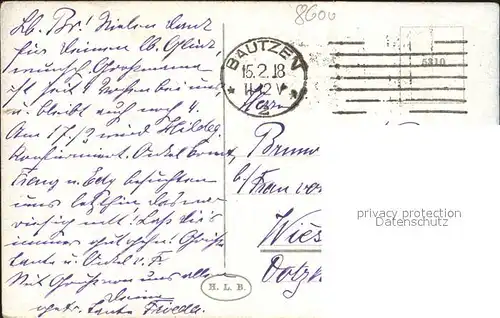 Lb. Br! Vielen Dank
für Deinen lb. Glück-
wunsch. Grossmama
ist seit 4 Wochen bei uns
u. bleibt auch noch 4.
Am 17/3 wird Hildeg.
konfirmiert. Onkel
Franz u. Edg besuchten
uns letzthin das war
nett! Lass Dir's
immer gut gehn! Grüsse
Tante u. Onkel v. F.
Mit Grüssen von uns allen
Deine
getr. Tante Frieda.
8600
BAUTZEN
15.2.18
11-12 V
* 2 *
5310
Herrn
Bruno
b/ Frau von
privacy protection
Datenschutz
Wies
Dotzh
H. L. B.